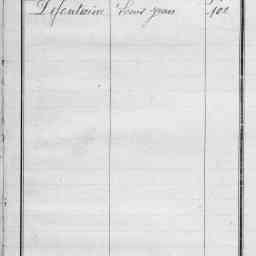 Defontaine Louis Jean 102